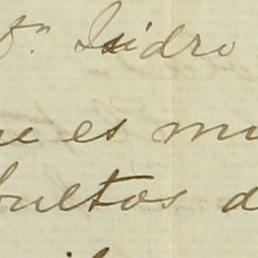 Dn. Isidro
ue es mu
bultos d